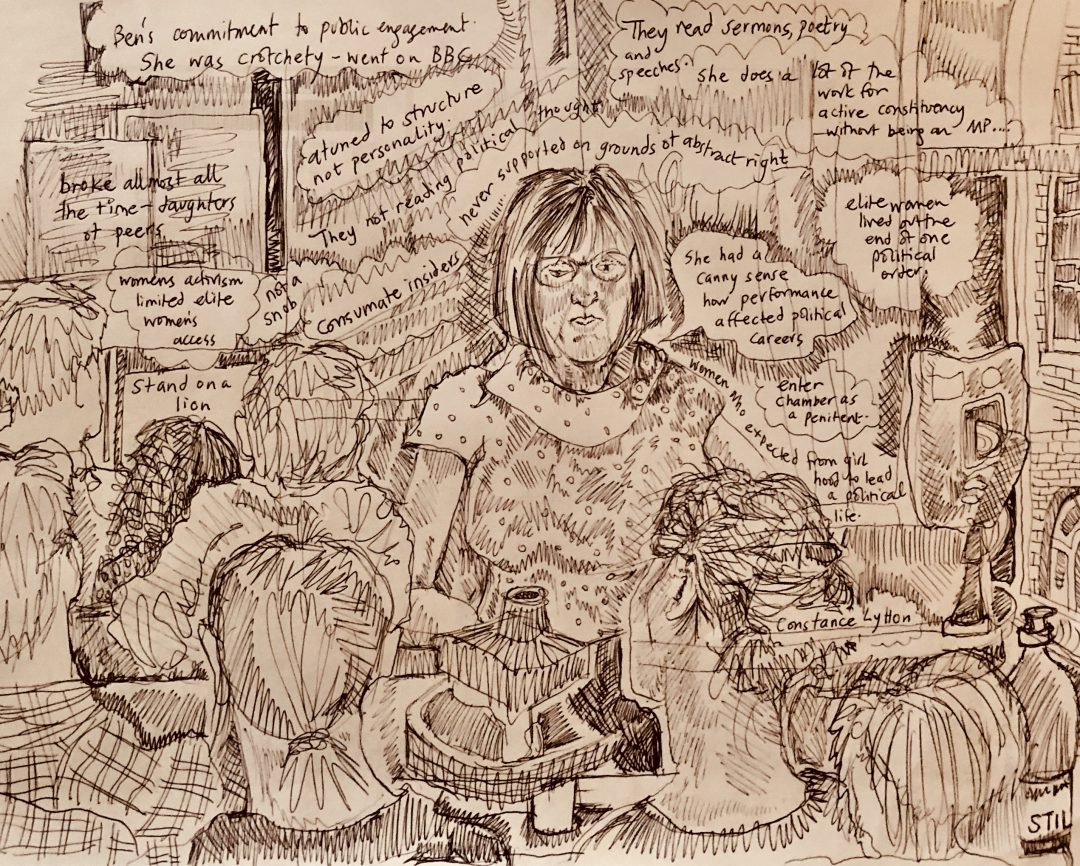 Ben's commitment to public engagement.
She was crotchety - went on BBC
They read sermons, poetry
and
speeches.
She does a lot of the
work for
active constituency
without being an MP...
atuned to structure
not personality.
They not reading political thought
never supported on grounds of abstract right
broke allmost all
the time - daughters
of peers
womens activism
limited elite
womens
access
not a
snob
Consumate insiders
Stand on a
lion
She had a
canny sense
how performance
affected political
careers
elite women
lived out the
end of one
political
order.
enter
chamber as
a penitent
women who expected from girl
hood to lead
a political
life
Constance Lytton
STIL